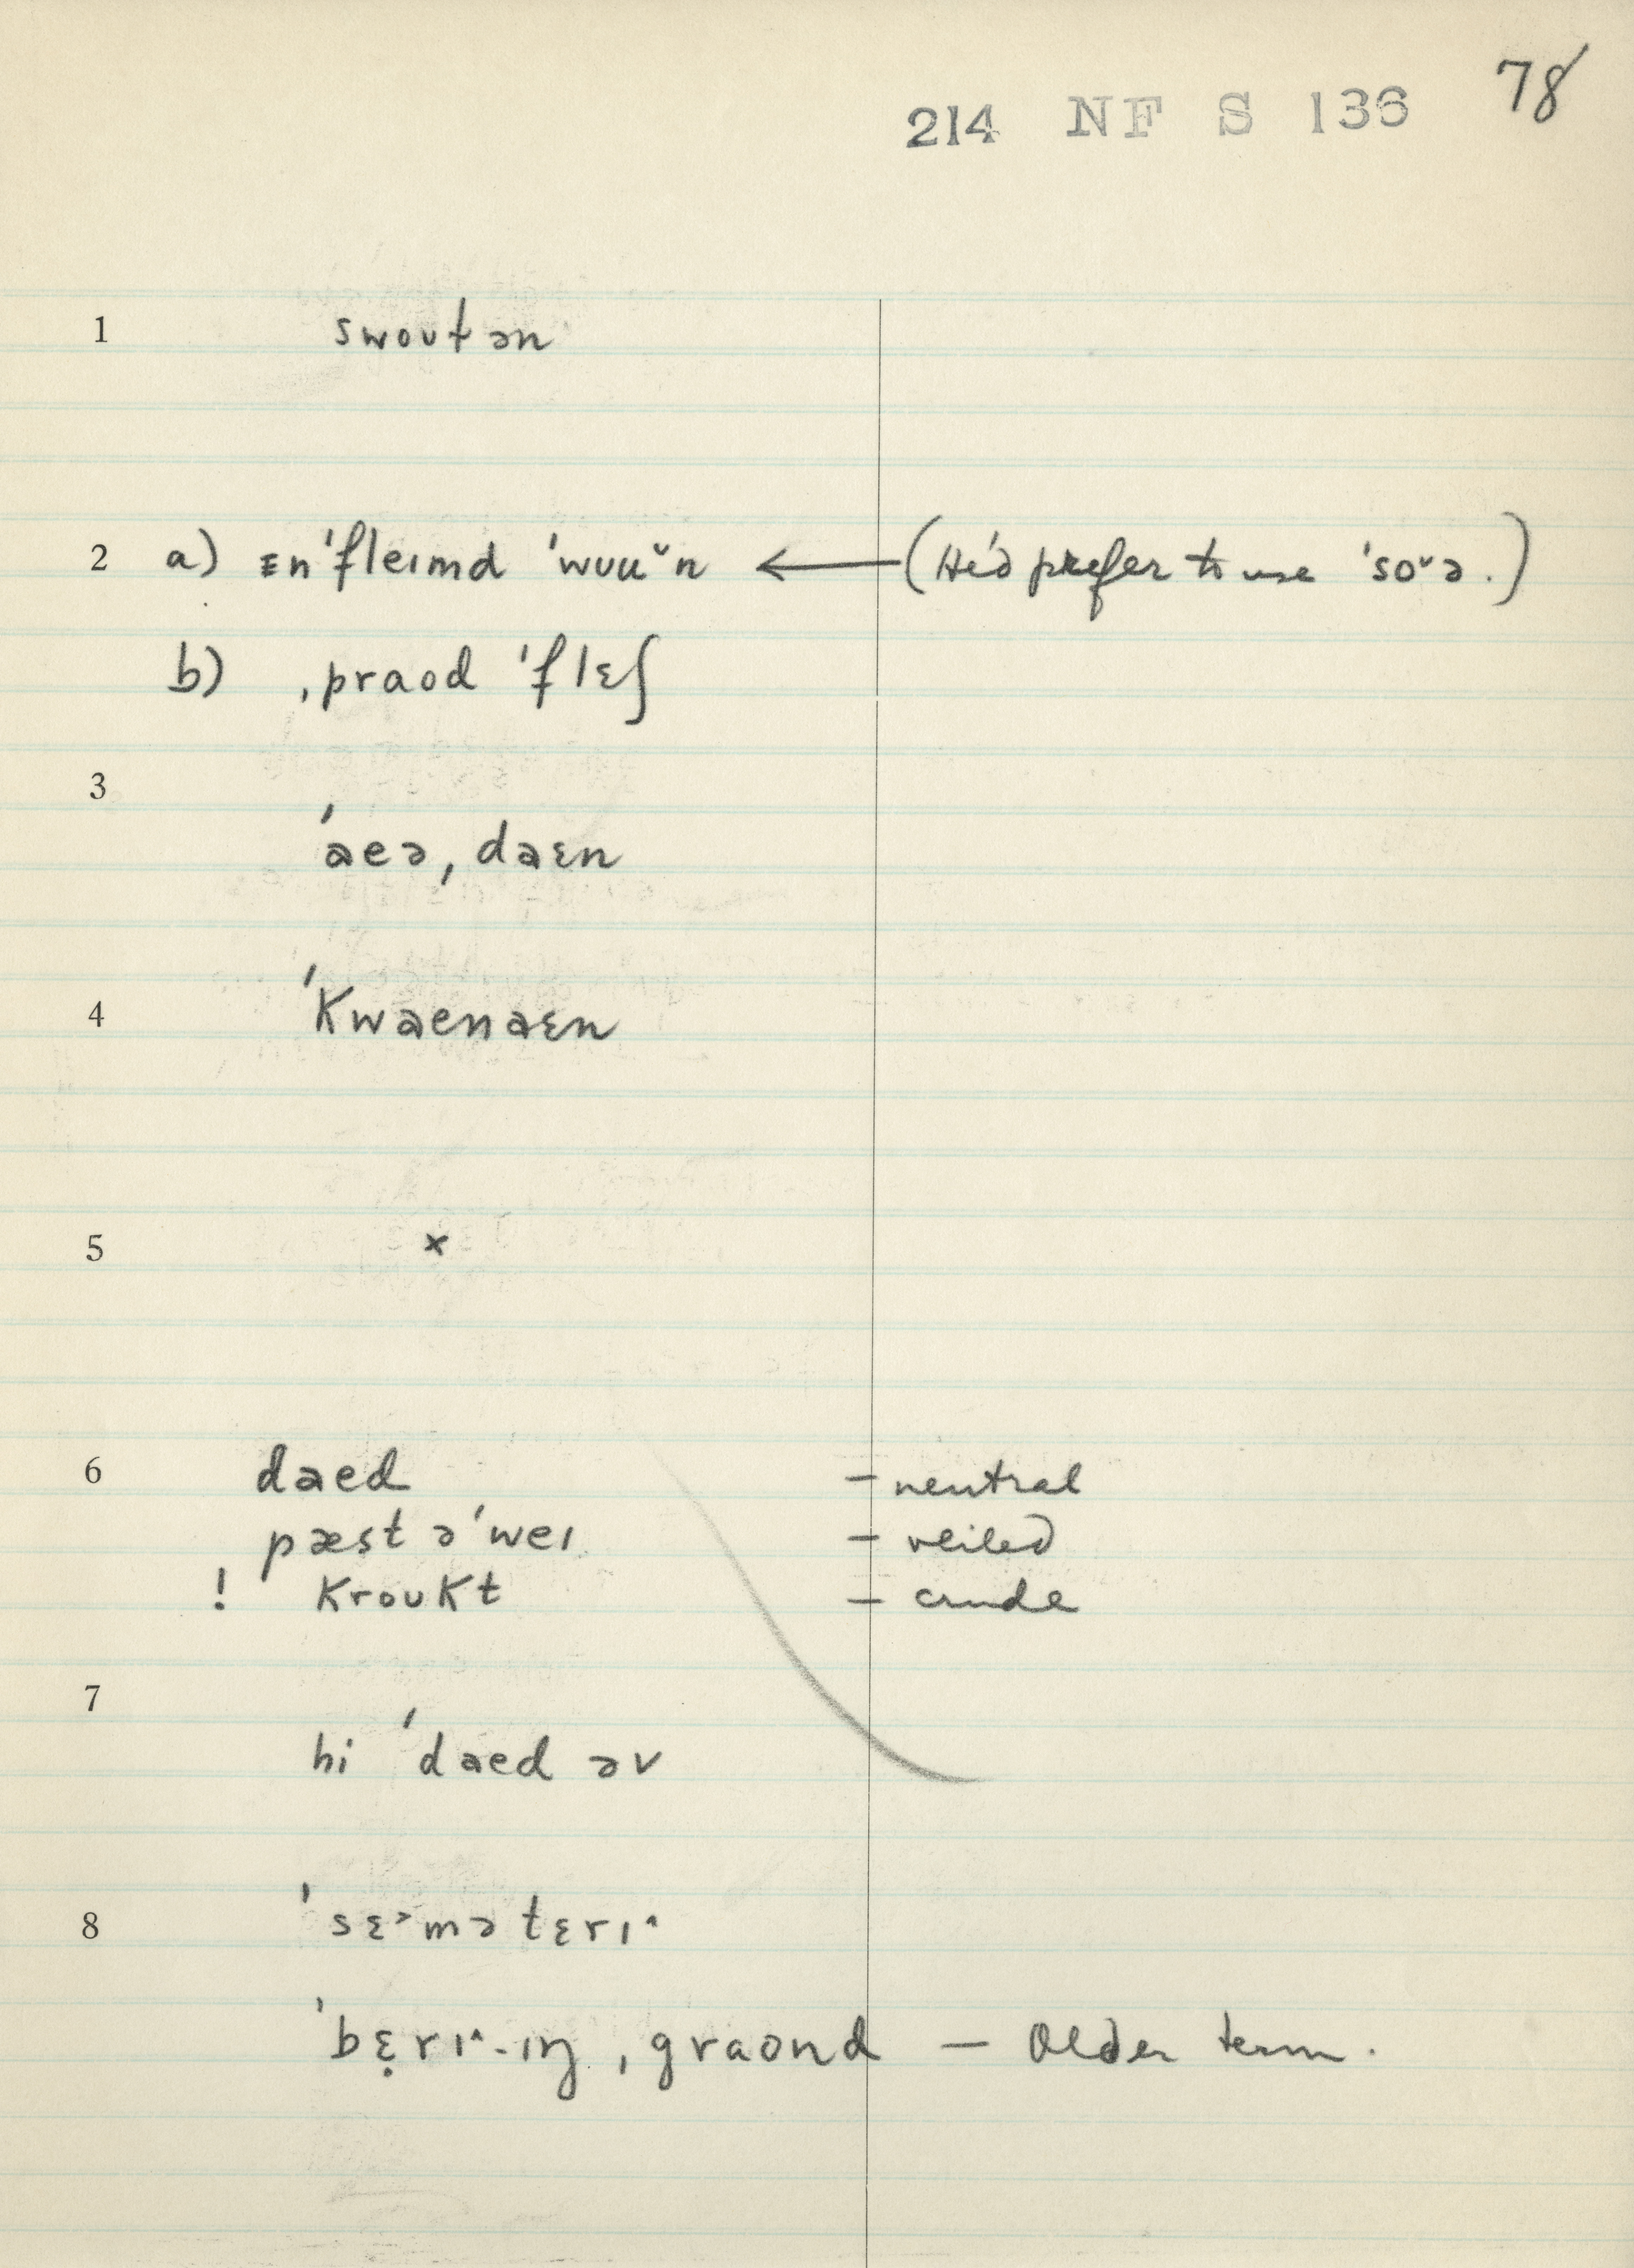 214 NF S 136 78
1 swoutən
2 a) ɛn'fleɪmd 'wuuˇn ← (He'd prefer to use 'soˇə.)
b) ˌpraod 'flɛʃ
3
'aeə, daɛn
4 'kwaenaɛn
5 ×
6 daed – neutral
pæst ə'weɪ – veiled
! kroukt – crude
7
hi 'daed əv
8 'sɛ˃mətɛrɪ˄
'bɛ̣rɪ˄-ɪŋ ˌgraond – Older term.